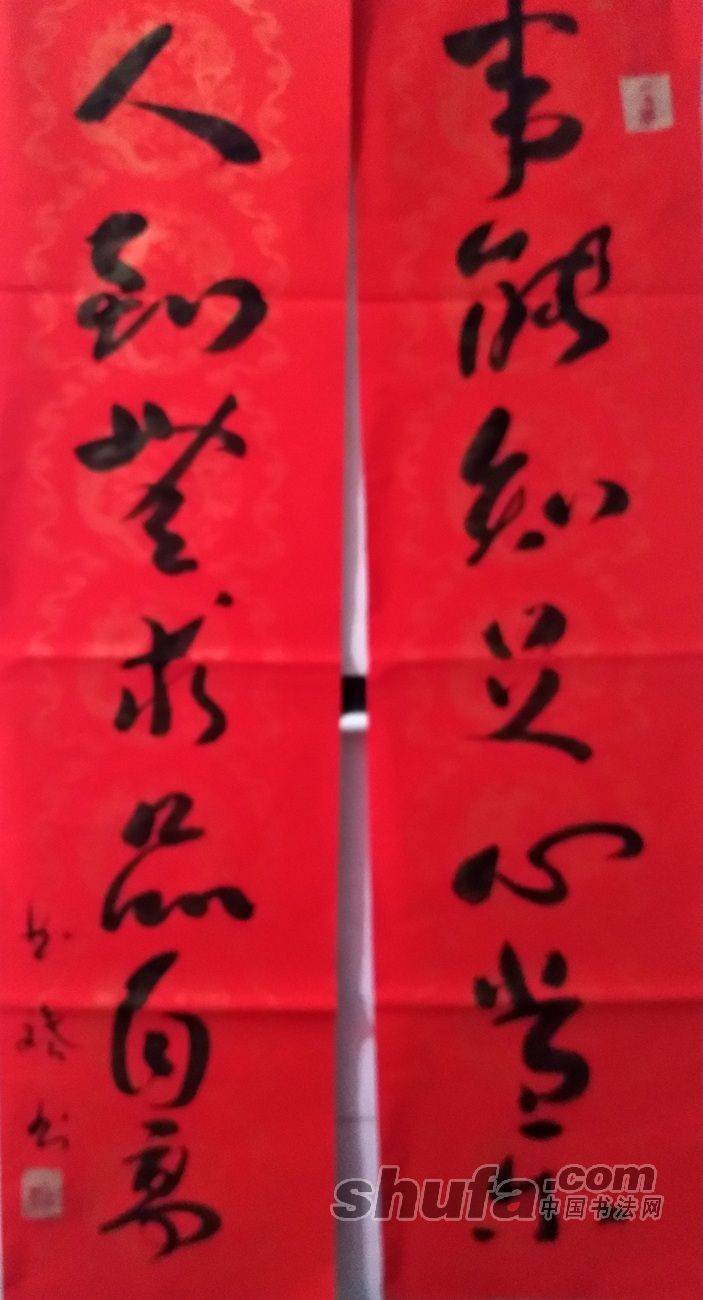 事能知足心常
人到无求品自高
shufa.com
中国书法网